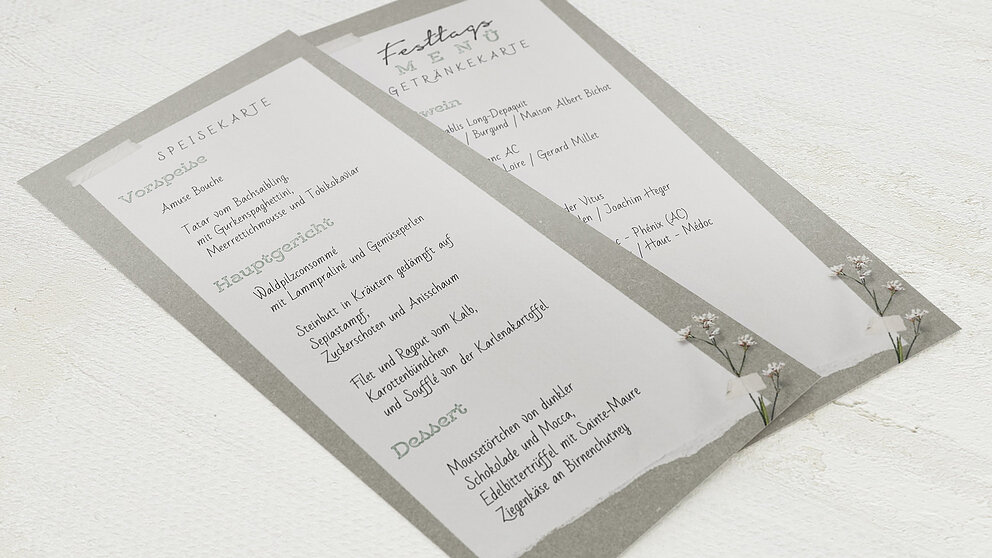 SPEISEKARTE
Vorspeise
Amuse Bouche
Tatar vom Bachsaibling,
mit Gurkenspaghettini,
Meerrettichmousse und Tobikokaviar
Hauptgericht
Waldpilzconsommé
mit Lammpraliné und Gemüseperlen
Steinbutt in Kräutern gedämpft auf
Sepiastampf,
Zuckerschoten und Anisschaum
Filet und Ragout vom Kalb,
Karottenbündchen
und Soufflé von der Karlenakartoffel
Dessert
Moussetörtchen von dunkler
Schokolade und Mocca,
Edelbittertrüffel mit Sainte-Maure
Ziegenkäse an Birnenchutney
Festtags
MENÜ
GETRÄNKEKARTE
wein
ablis Long-Depaquit
/ Burgund / Maison Albert Bichot
nc AC
Loire / Gerard Millet
der Vitus
en / Joachim Heger
c - Phénix (AC)
/ Haut - Médoc